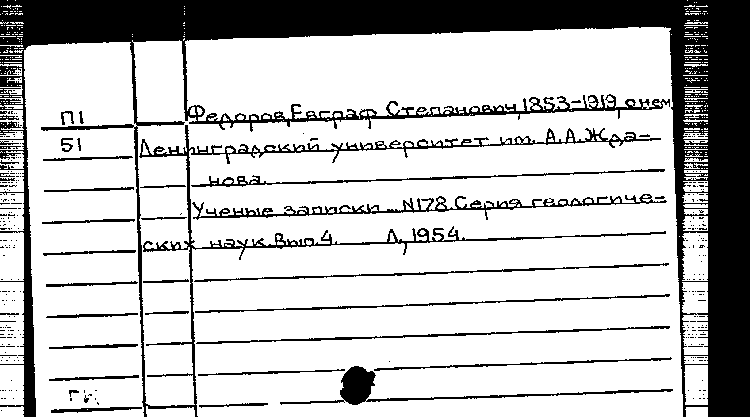 П1 Федоров, Евграф Степанович, 1853-1919, о нем
51 Ленинградский университет им. А.А.Жда-
нова.
Ученые записки... N178. Серия геологиче-
ских наук. Вып. 4. Л., 1954.